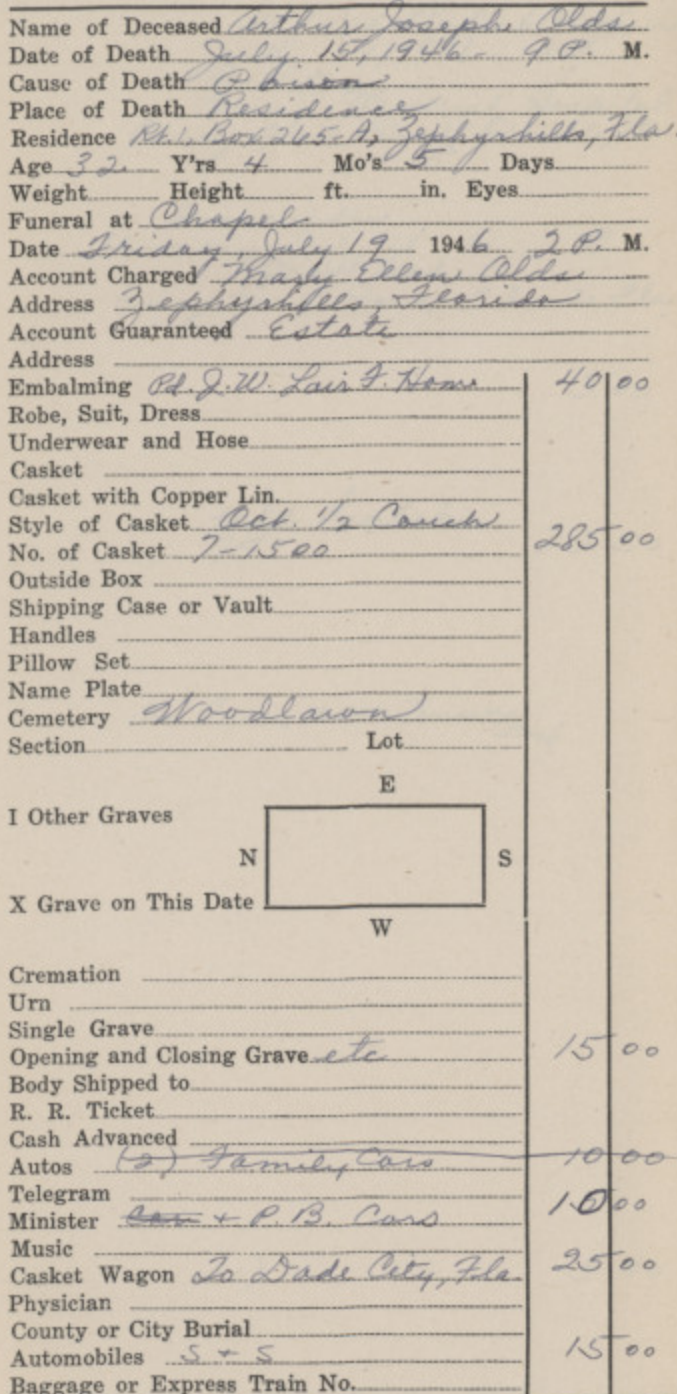 Name of Deceased Arthur Joseph Olds
Date of Death July 15, 1946 - 9 P. M.
Cause of Death Poison
Place of Death Residence
Residence Rt. 1, Box 265-A, Zephyrhills, Fla.
Age 32 Y'rs 4 Mo's 5 Days
Weight Height ft. in. Eyes
Funeral at Chapel
Date Friday, July 19 1946 2 P. M.
Account Charged Mary Ellen Olds
Address Zephyrhills, Florida
Account Guaranteed Estate
Address
Embalming Pd. J. W. Lair F. Home 40 00
Robe, Suit, Dress
Underwear and Hose
Casket
Casket with Copper Lin.
Style of Casket Oct. 1/2 Couch
No. of Casket 7-1500 285 00
Outside Box
Shipping Case or Vault
Handles
Pillow Set
Name Plate
Cemetery Woodlawn
Section Lot
E
I Other Graves
N S
X Grave on This Date
W
Cremation
Urn
Single Grave
Opening and Closing Grave etc 15 00
Body Shipped to
R. R. Ticket
Cash Advanced
Autos (2) Family Cars 10 00
Telegram
Minister + P. B. Cars 10 00
Music
Casket Wagon To Dade City, Fla. 25 00
Physician
County or City Burial
Automobiles S + S 15 00
Baggage or Express Train No.